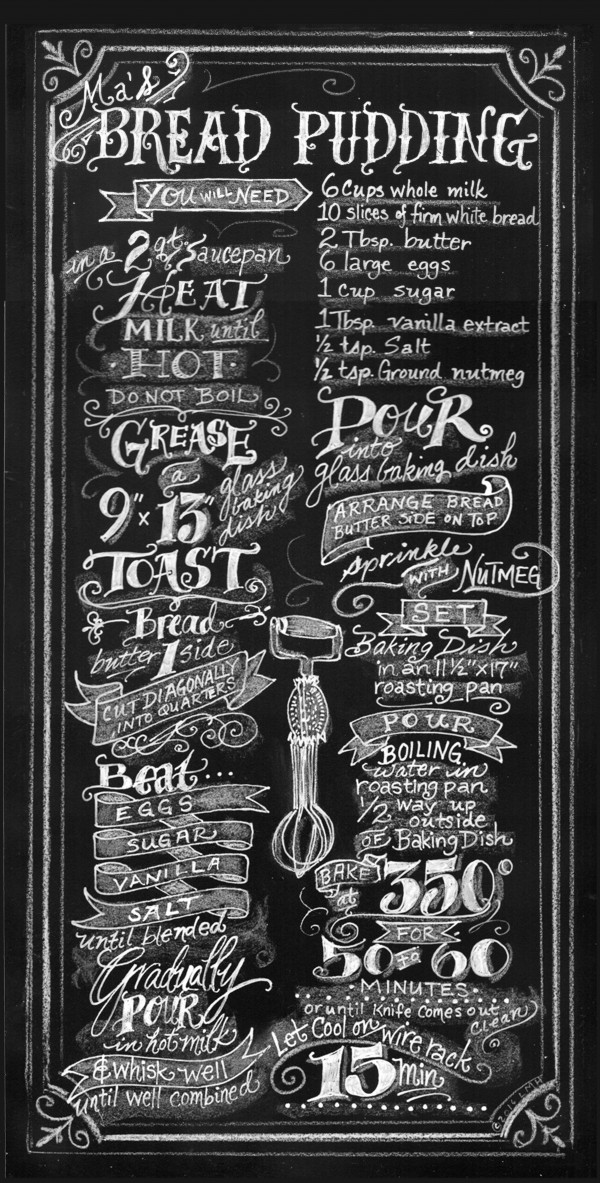 Ma's
BREAD PUDDING
YOU WILL NEED
6 Cups whole milk
10 slices of firm white bread
2 Tbsp. butter
6 large eggs
1 Cup sugar
1 Tbsp. vanilla extract
1/2 tsp. Salt
1/2 tsp. Ground nutmeg
in a 2 qt. Saucepan
HEAT
MILK until
HOT
DO NOT BOIL
GREASE
a
9" x 13" glass
baking
dish
TOAST
Bread
butter 1 side
CUT DIAGONALLY
INTO QUARTERS
Beat...
EGGS
SUGAR
VANILLA
SALT
until blended
Gradually
POUR
in hot milk
& Whisk well
until well combined
POUR
into
glass baking dish
ARRANGE BREAD
BUTTER SIDE ON TOP
Sprinkle
WITH NUTMEG
SET
Baking Dish
in an 11 1/2" x 17"
roasting pan
POUR
BOILING
water in
roasting pan
1/2 way up
outside
OF Baking Dish
BAKE
at 350°
FOR
50 to 60
MINUTES
or until knife comes out
clean
Let Cool on wire rack
15 Min